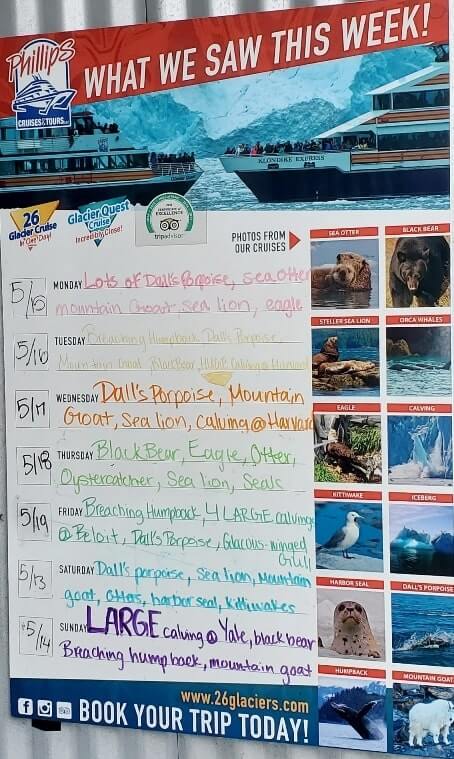 Phillips
CRUISES & TOURS LLC
WHAT WE SAW THIS WEEK!
KLONDIKE EXPRESS
26
Glacier Cruise
in One Day!
Glacier Quest
Cruise
Incredibly Close!
CERTIFICATE of
EXCELLENCE
tripadvisor
PHOTOS FROM
OUR CRUISES
SEA OTTER
BLACK BEAR
STELLER SEA LION
ORCA WHALES
EAGLE
CALVING
KITTIWAKE
ICEBERG
HARBOR SEAL
DALL'S PORPOISE
HUMPBACK
MOUNTAIN GOAT
5/15 MONDAY Lots of Dall's Porpoise, sea otter
mountain Goat, sea lion, eagle
5/16 TUESDAY Breaching Humpback, Dall's Porpoise,
Mountain Goat, Black Bear, HUGE Calving @ Harvard
5/17 WEDNESDAY Dall's Porpoise, Mountain
Goat, Sea lion, Calving @ Harvard
5/18 THURSDAY Black Bear, Eagle, Otter,
Oystercatcher, Sea lion, Seals
5/19 FRIDAY Breaching Humpback, 4 LARGE calvings
@ Beloit, Dall's Porpoise, Glacous-winged
Gull
5/13 SATURDAY Dall's porpoise, Sea lion, Mountain
goat, otters, harbor seal, kittiwakes
5/14 SUNDAY LARGE calving @ Yale, black bear
Breaching humpback, mountain goat
www.26glaciers.com
BOOK YOUR TRIP TODAY!